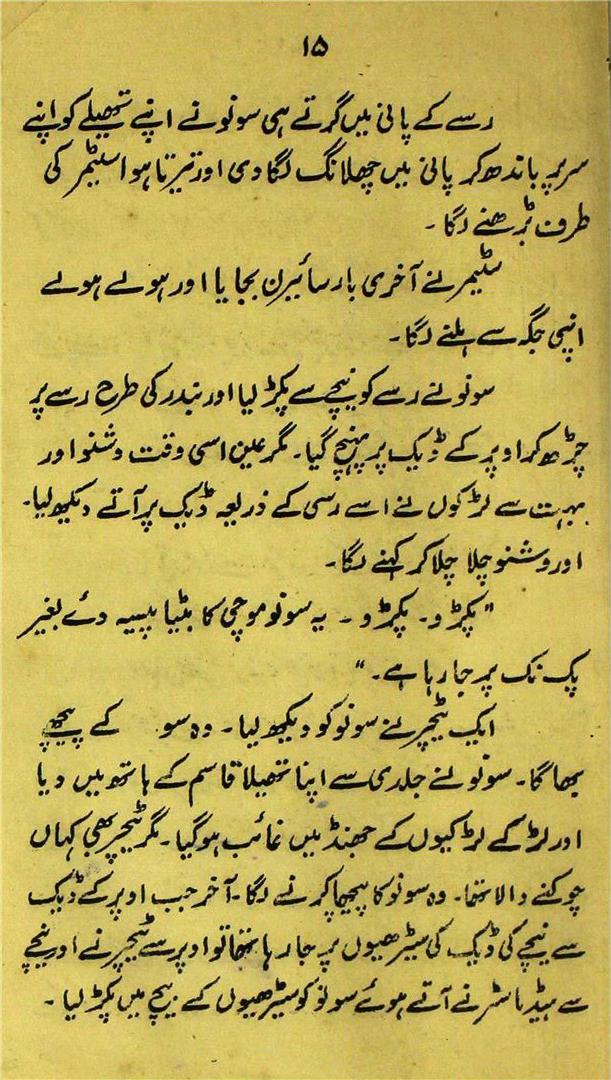 ۱۵
رسے کے پانی میں گرتے ہی سونو نے اپنے تھیلے کو اپنے
سر پر باندھ کر پانی میں چھلانگ لگا دی اور تیرتا ہوا سٹیمر کی
طرف بڑھنے لگا۔
سٹیمر نے آخری بار سائیرن بجایا اور ہولے ہولے
اپنی جگہ سے ہلنے لگا۔
سونو نے رسے کو نیچے سے پکڑ لیا اور بندر کی طرح رسے پر
چڑھ کر اوپر کے ڈیک پر پہنچ گیا۔ مگر عین اسی وقت وشنو اور
بہت سے لڑکوں نے اسے رسی کے ذریعہ ڈیک پر آتے دیکھ لیا۔
اور وشنو چلا چلا کر کہنے لگا۔
"پکڑو۔ پکڑو۔ یہ سونو موچی کا بیٹا پیسہ دئے بغیر
پک نک پر جا رہا ہے۔"
ایک ٹیچر نے سونو کو دیکھ لیا۔ وہ سو کے پیچھے
بھاگا۔ سونو نے جلدی سے اپنا تھیلا قاسم کے ہاتھ میں دیا
اور لڑکے لڑکیوں کے جھنڈ میں غائب ہو گیا۔ مگر ٹیچر بھی کہاں
چوکنے والا تھا۔ وہ سونو کا پیچھا کرنے لگا۔ آخر جب اوپر کے ڈیک
سے نیچے کی ڈیک کی سیڑھیوں پر جا رہا تھا تو اوپر سے ٹیچر نے اور نیچے
سے ہیڈ ماسٹر نے آتے ہوئے سونو کو سیڑھیوں کے بیچ میں پکڑ لیا۔